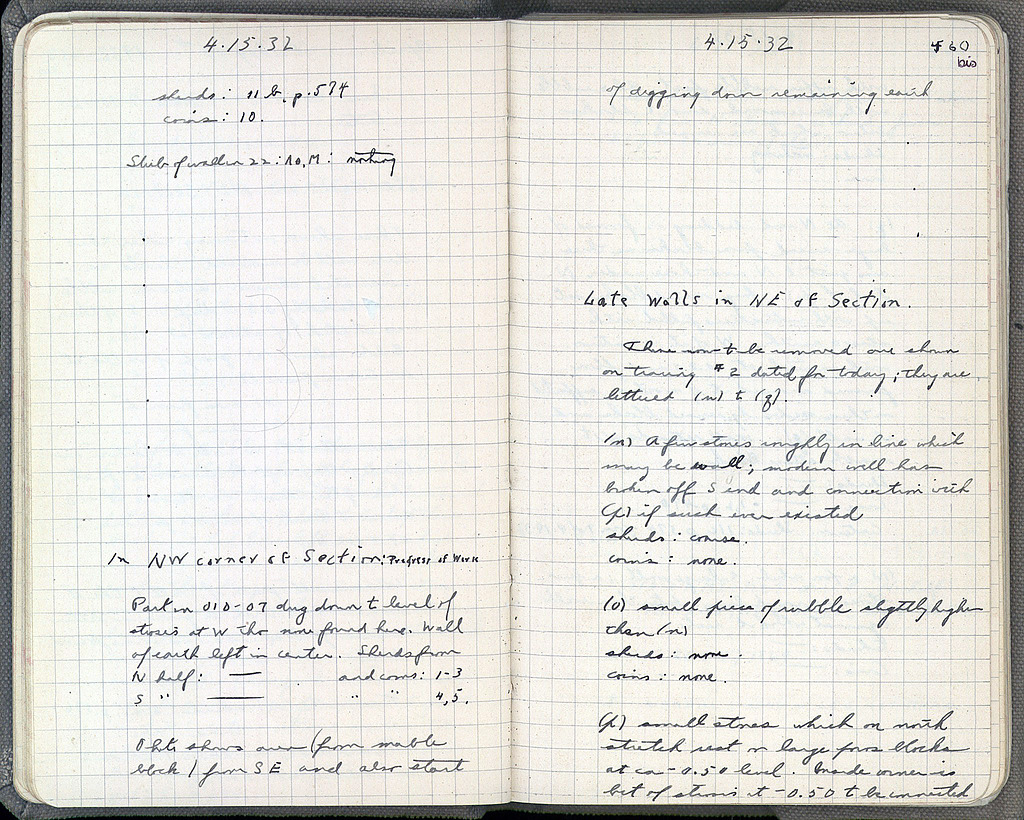 4.15.32
sherds: 11 b. p. 574
coins: 10.
of wall in 22: 10, M: nothing
In NW corner of Section: Progress of Work
Part in 010-07 dug down to level of
stosis at W tho none found here. Wall
of earth left in center. Sherds from
N half: — and coins: 1-3
S " — " " 4, 5.
Photo shows area (from marble
block) from SE and also start
4.15.32
60
bis
of digging down remaining earth
Late Walls in NE of Section.
Those now to be removed are shown
on tracing #2 dated for today; they are
lettered (n) to (q).
(n) A few stones roughly in line which
may be wall; modern well has
broken off S end and connection with
(p) if such ever existed
sherds: coarse.
coins: none.
(o) small piece of rubble slightly higher
than (n)
sherds: none.
coins: none.
(p) small stones which on north
stretch rest on large poros blocks
at ca -0.50 level. Inside corner is
bit of stosis at -0.50 to be connected